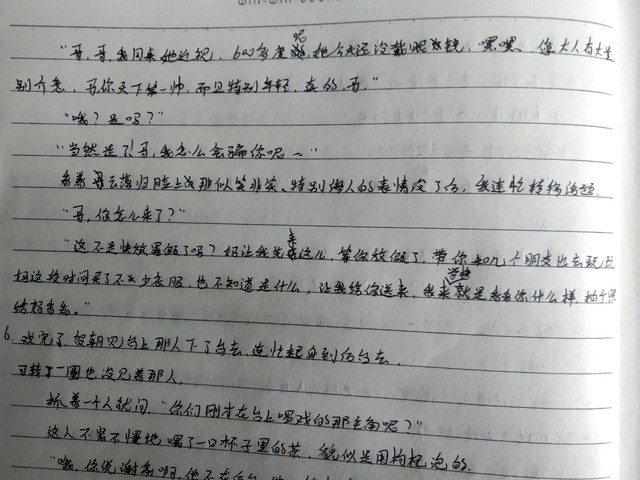 "哥,哥,我同桌她近视,600多度呢,她今天还没戴眼镜,嘿嘿,您大人有大量
别介意,哥你天下第一帅,而且特别年轻,真的,哥。"
"哦?是吗?"
"当然是了!哥,我怎么会骗你呢~"
看着哥云落归脸上没那似笑非笑、特别撩人的表情没了后,我连忙转移话题.
"哥,你怎么来了?"
"这不是快放暑假了吗?妈让我先来这儿,等你放假了,带你和几个朋友出去玩
妈这段时间买了不少衣服,也不知道是什么,让我给你送来,我来学校就是看看你什么样,拍个照
给妈看看。"
6.戏完了,贺朝见台上那人下了台去,连忙起身到后台去.
可转了一圈也没见着那人.
抓着一个人就问."你们刚才在台上唱戏的那主角呢?"
这人不紧不慢地喝了一口杯子里的茶,貌似是用枸杞泡的.
"哦,你说谢俞啊,他不在后台